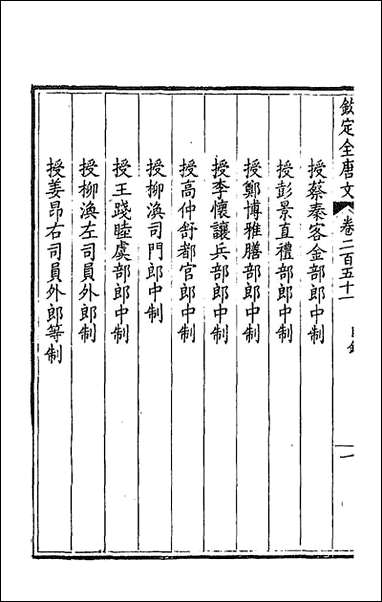 欽定全唐文 卷二百五十一 目錄 一
授蔡秦客金部郎中制
授彭景直禮部郎中制
授鄭博雅膳部郎中制
授李懷讓兵部郎中制
授高仲舒都官郎中制
授柳渙司門郎中制
授王踐睦虞部郎中制
授柳渙左司員外郎制
授姜昂右司員外郎等制